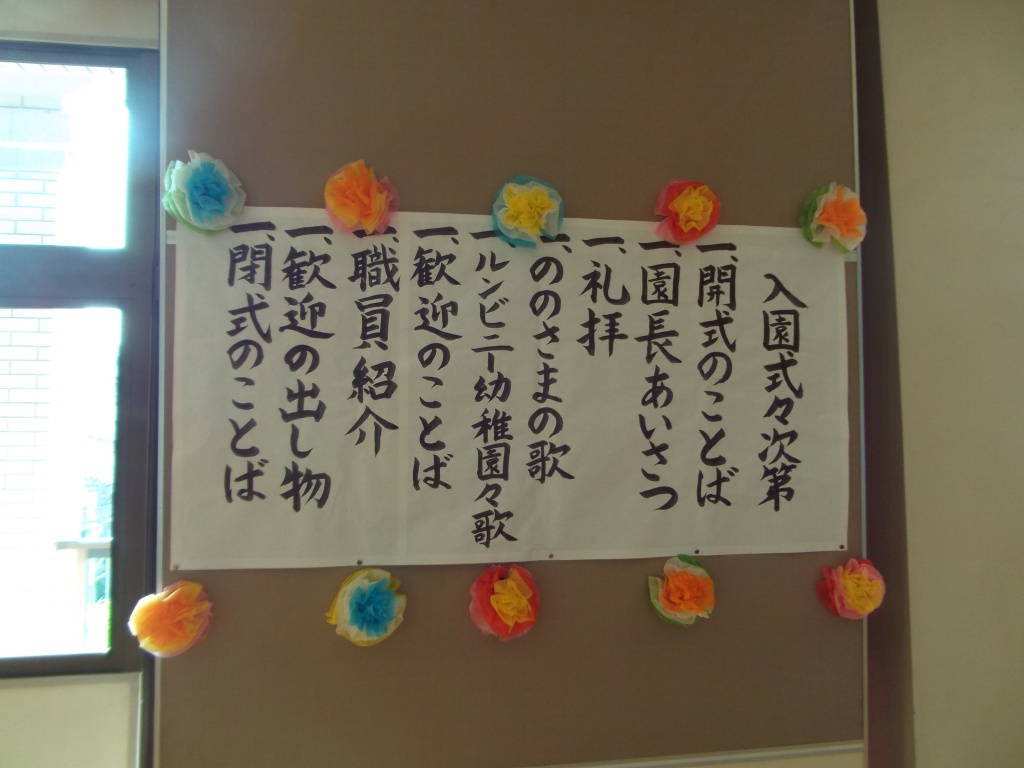 入園式々次第
一、開式のことば
一、園長あいさつ
一、礼拝
一、ののさまの歌
一、ルンビニー幼稚園々歌
一、歓迎のことば
一、職員紹介
一、歓迎の出し物
一、閉式のことば